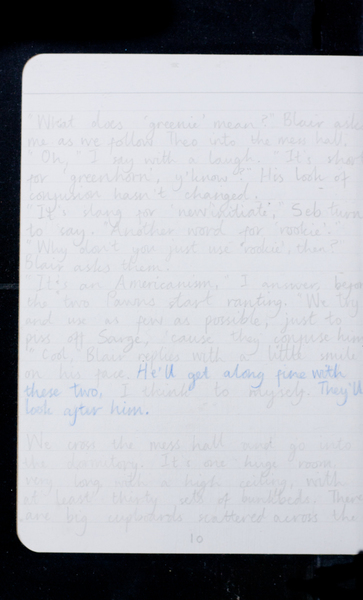 "What does 'greenie' mean?" Blair asks
me as we follow Theo into the mess hall.
"Oh," I say with a laugh. "It's short
for 'greenhorn', y'know?" His look of
confusion hasn't changed.
"It's slang for 'new initiate'," Seb turns
to say. "Another word for 'rookie'."
"Why don't you just use 'rookie', then?"
Blair asks them.
"It's an Americanism," I answer before
the two start ranting. "We try
and use as few as possible, just to
piss off Sarge, 'cause they confuse him."
"Cool," Blair replies with a little smile
on his face. He'll get along fine with
these two, I think to myself. They'll
look after him.
We cross the mess hall and go into
the dormitory. It's one huge room,
very long with a high ceiling, with
at least thirty sets of bunkbeds. There
are big cupboards scattered across the
10